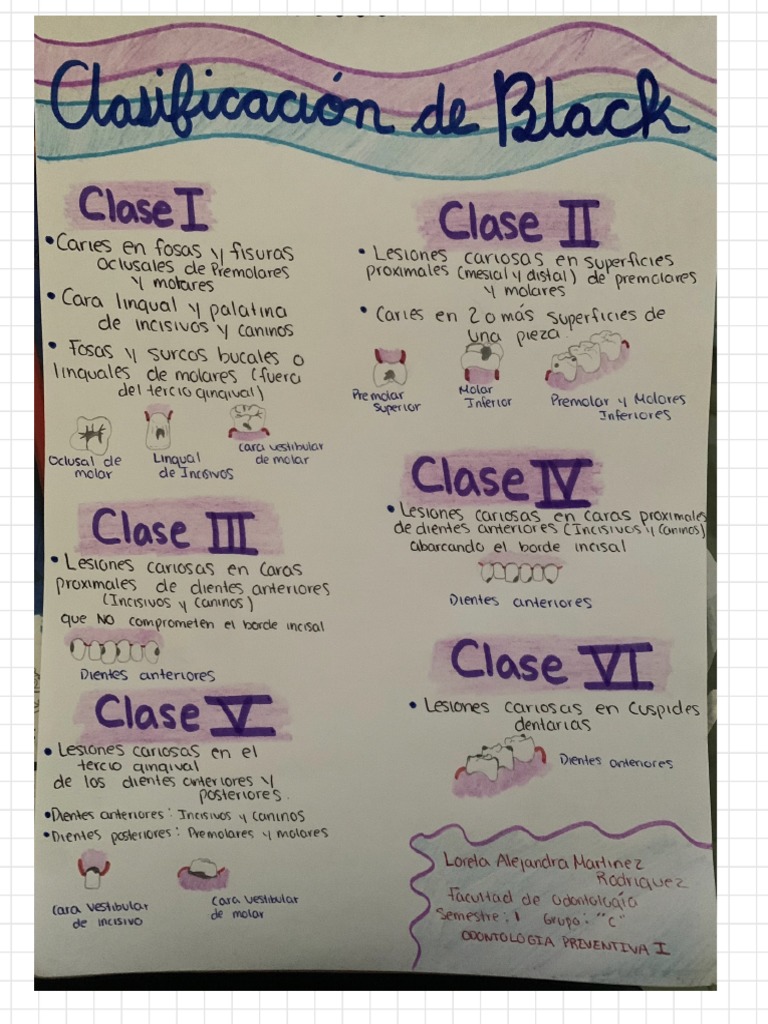 Clasificación de Black
Clase I
• Caries en fosas y fisuras
oclusales de Premolares
y molares
• Cara lingual y palatina
de incisivos y caninos
• Fosas y surcos bucales o
linguales de molares (fuera
del tercio gingival)
Oclusal de
molar
Lingual
de Incisivos
cara vestibular
de molar
Clase II
• Lesiones cariosas en superficies
proximales (mesial y distal) de premolares
y molares
• Caries en 2 o más superficies de
una pieza.
Premolar
Superior
Molar
Inferior
Premolar y Molares
Inferiores
Clase III
• Lesiones cariosas en caras
proximales de dientes anteriores
(Incisivos y caninos)
que NO comprometen el borde incisal
Dientes anteriores
Clase IV
• Lesiones cariosas en caras proximales
de dientes anteriores (Incisivos y caninos)
abarcando el borde incisal
Dientes anteriores
Clase V
• Lesiones cariosas en el
tercio gingival
de los dientes anteriores y
posteriores.
• Dientes anteriores: Incisivos y caninos
• Dientes posteriores: Premolares y molares
cara vestibular
de incisivo
cara vestibular
de molar
Clase VI
• Lesiones cariosas en cuspides
dentarias
Dientes anteriores
Lorela Alejandra Martinez
Rodriguez
Facultad de Odontología
Semestre: 1 Grupo: "C"
ODONTOLOGIA PREVENTIVA I